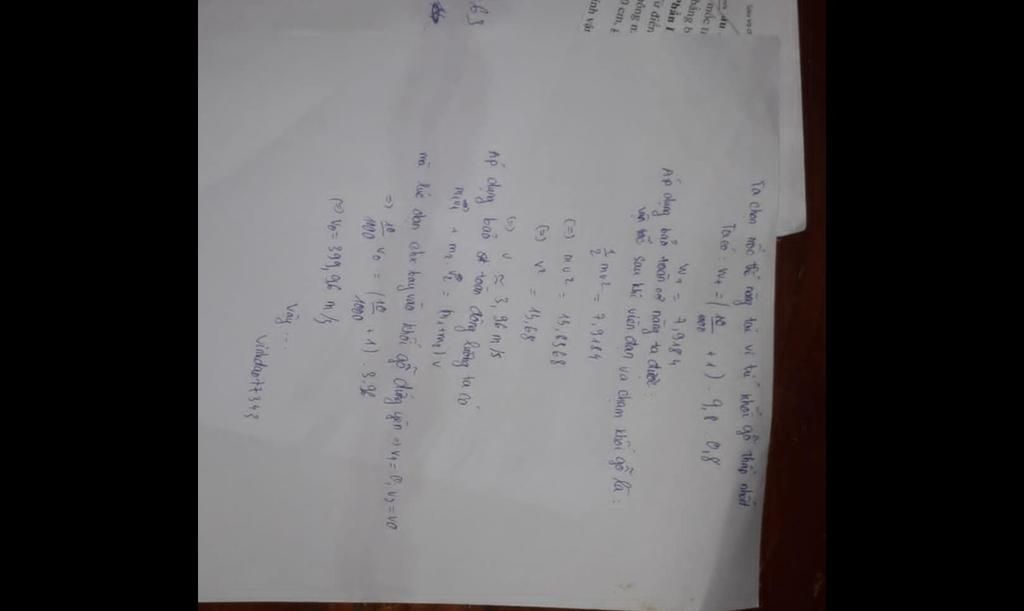 Ta chọn mốc thế năng tại vị trí khối gỗ thấp nhất
Ta có : W₁ = ( 10/1000 + 1 ) . 9,8 . 0,8
W₁ = 7,9184
Áp dụng bảo toàn cơ năng ta được :
vận tốc sau khi viên đạn va chạm khối gỗ là :
1/2 mv² = 7,9184
(=) mv² = 15,8368
(=) v² = 15,68
(=) v ≈ 3,96 m/s
Áp dụng bảo toàn động lượng ta có
m₁v₁ + m₂.v₂ = (m₁+m₂) v
mà lúc đạn bay vào khối gỗ đứng yên => v₁ = 0, v₂ = v₀
=> 10/1000 v₀ = ( 10/1000 + 1 ) . 3,96
(=) v₀ = 399,96 m/s
Vậy ...
Vinhdao17343